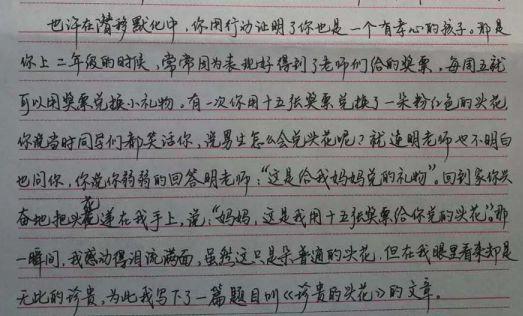 也许在潜移默化中,你用行动证明了你也是一个有孝心的孩子。那是
你上二年级的时候,常常因为表现好得到了老师们给的奖票,每周五就
可以用奖票兑换小礼物。有一次你用十五张奖票兑换了一朵粉红色的头花,
你说当时同学们都笑话你,说男生怎么会兑头花呢?就连明老师也不明白
也问你,你说你弱弱的回答明老师:“这是给我妈妈兑的礼物”。回到家你兴
奋地把头花递在我手上,说:“妈妈,这是我用十五张奖票给你兑的头花。”那
一瞬间,我感动得泪流满面,虽然这只是朵普通的头花,但在我眼里看来却是
无比的珍贵,为此我写下了一篇题目叫《珍贵的头花》的文章。